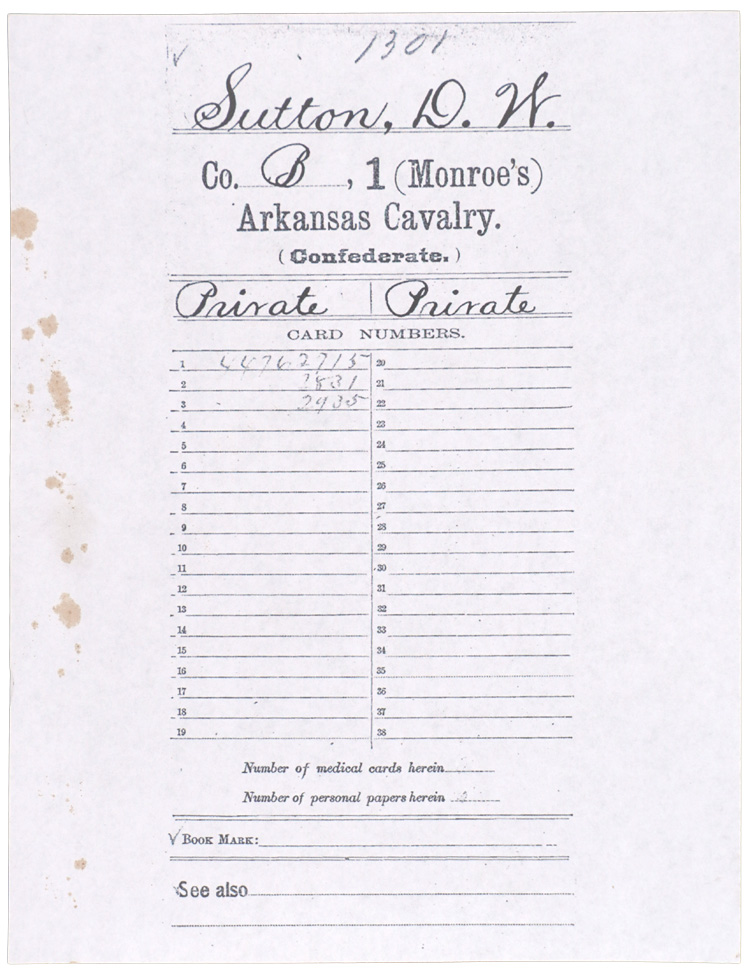 1301
Sutton, D. W.
Co. B, 1 (Monroe's)
Arkansas Cavalry.
(Confederate.)
Private | Private
CARD NUMBERS.
1 44762715 20
2 2831 21
3 2935 22
4 23
5 24
6 25
7 26
8 27
9 28
10 29
11 30
12 31
13 32
14 33
15 34
16 35
17 36
18 37
19 38
Number of medical cards herein
Number of personal papers herein
BOOK MARK:
See also